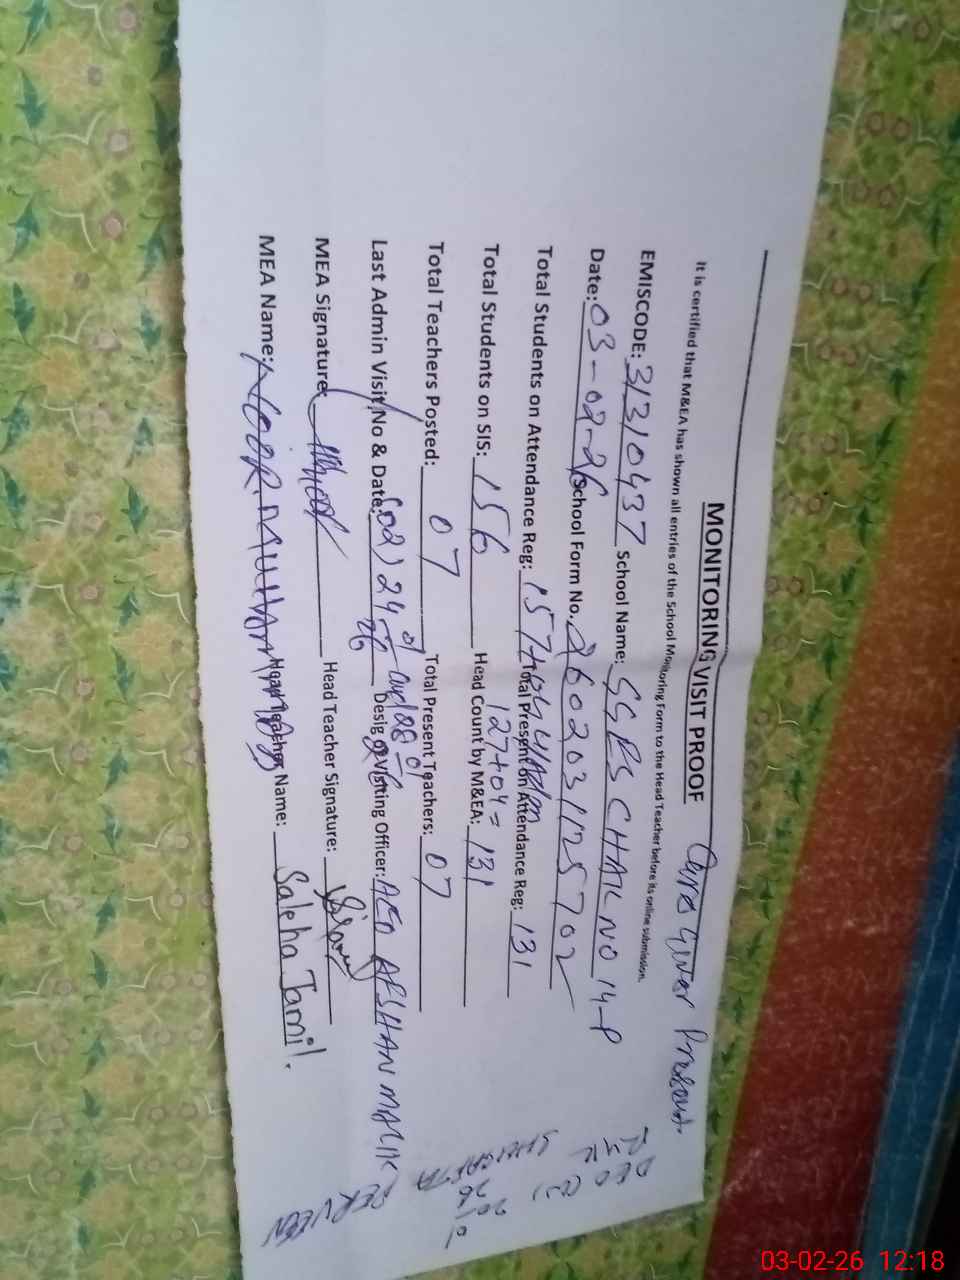 MONITORING VISIT PROOF
Care Giver Present.
It is certified that M&EA has shown all entries of the School Monitoring Form to the Head Teacher before its online submission.
EMISCODE: 31310437 School Name: GGES CHAK NO 14-P
Date: 03-02-26 School Form No. 2602031125702
Total Students on Attendance Reg: 157+04 Total Present on Attendance Reg: 131
127+04=
Total Students on SIS: 156 Head Count by M&EA: 131
Total Teachers Posted: 07 Total Present Teachers: 07
Last Admin Visit No & Date: (02) 24-01-26 and 28-01 Desig of Visiting Officer: AEO AFSHAN MALIK
MEA Signature: Head Teacher Signature:
MEA Name: NOOR MUHAMMAD Head Teacher Name: Saleha Jamil.
DEO
SHAGAFTA
PERVEEN
20
26
03-02-26 12:18